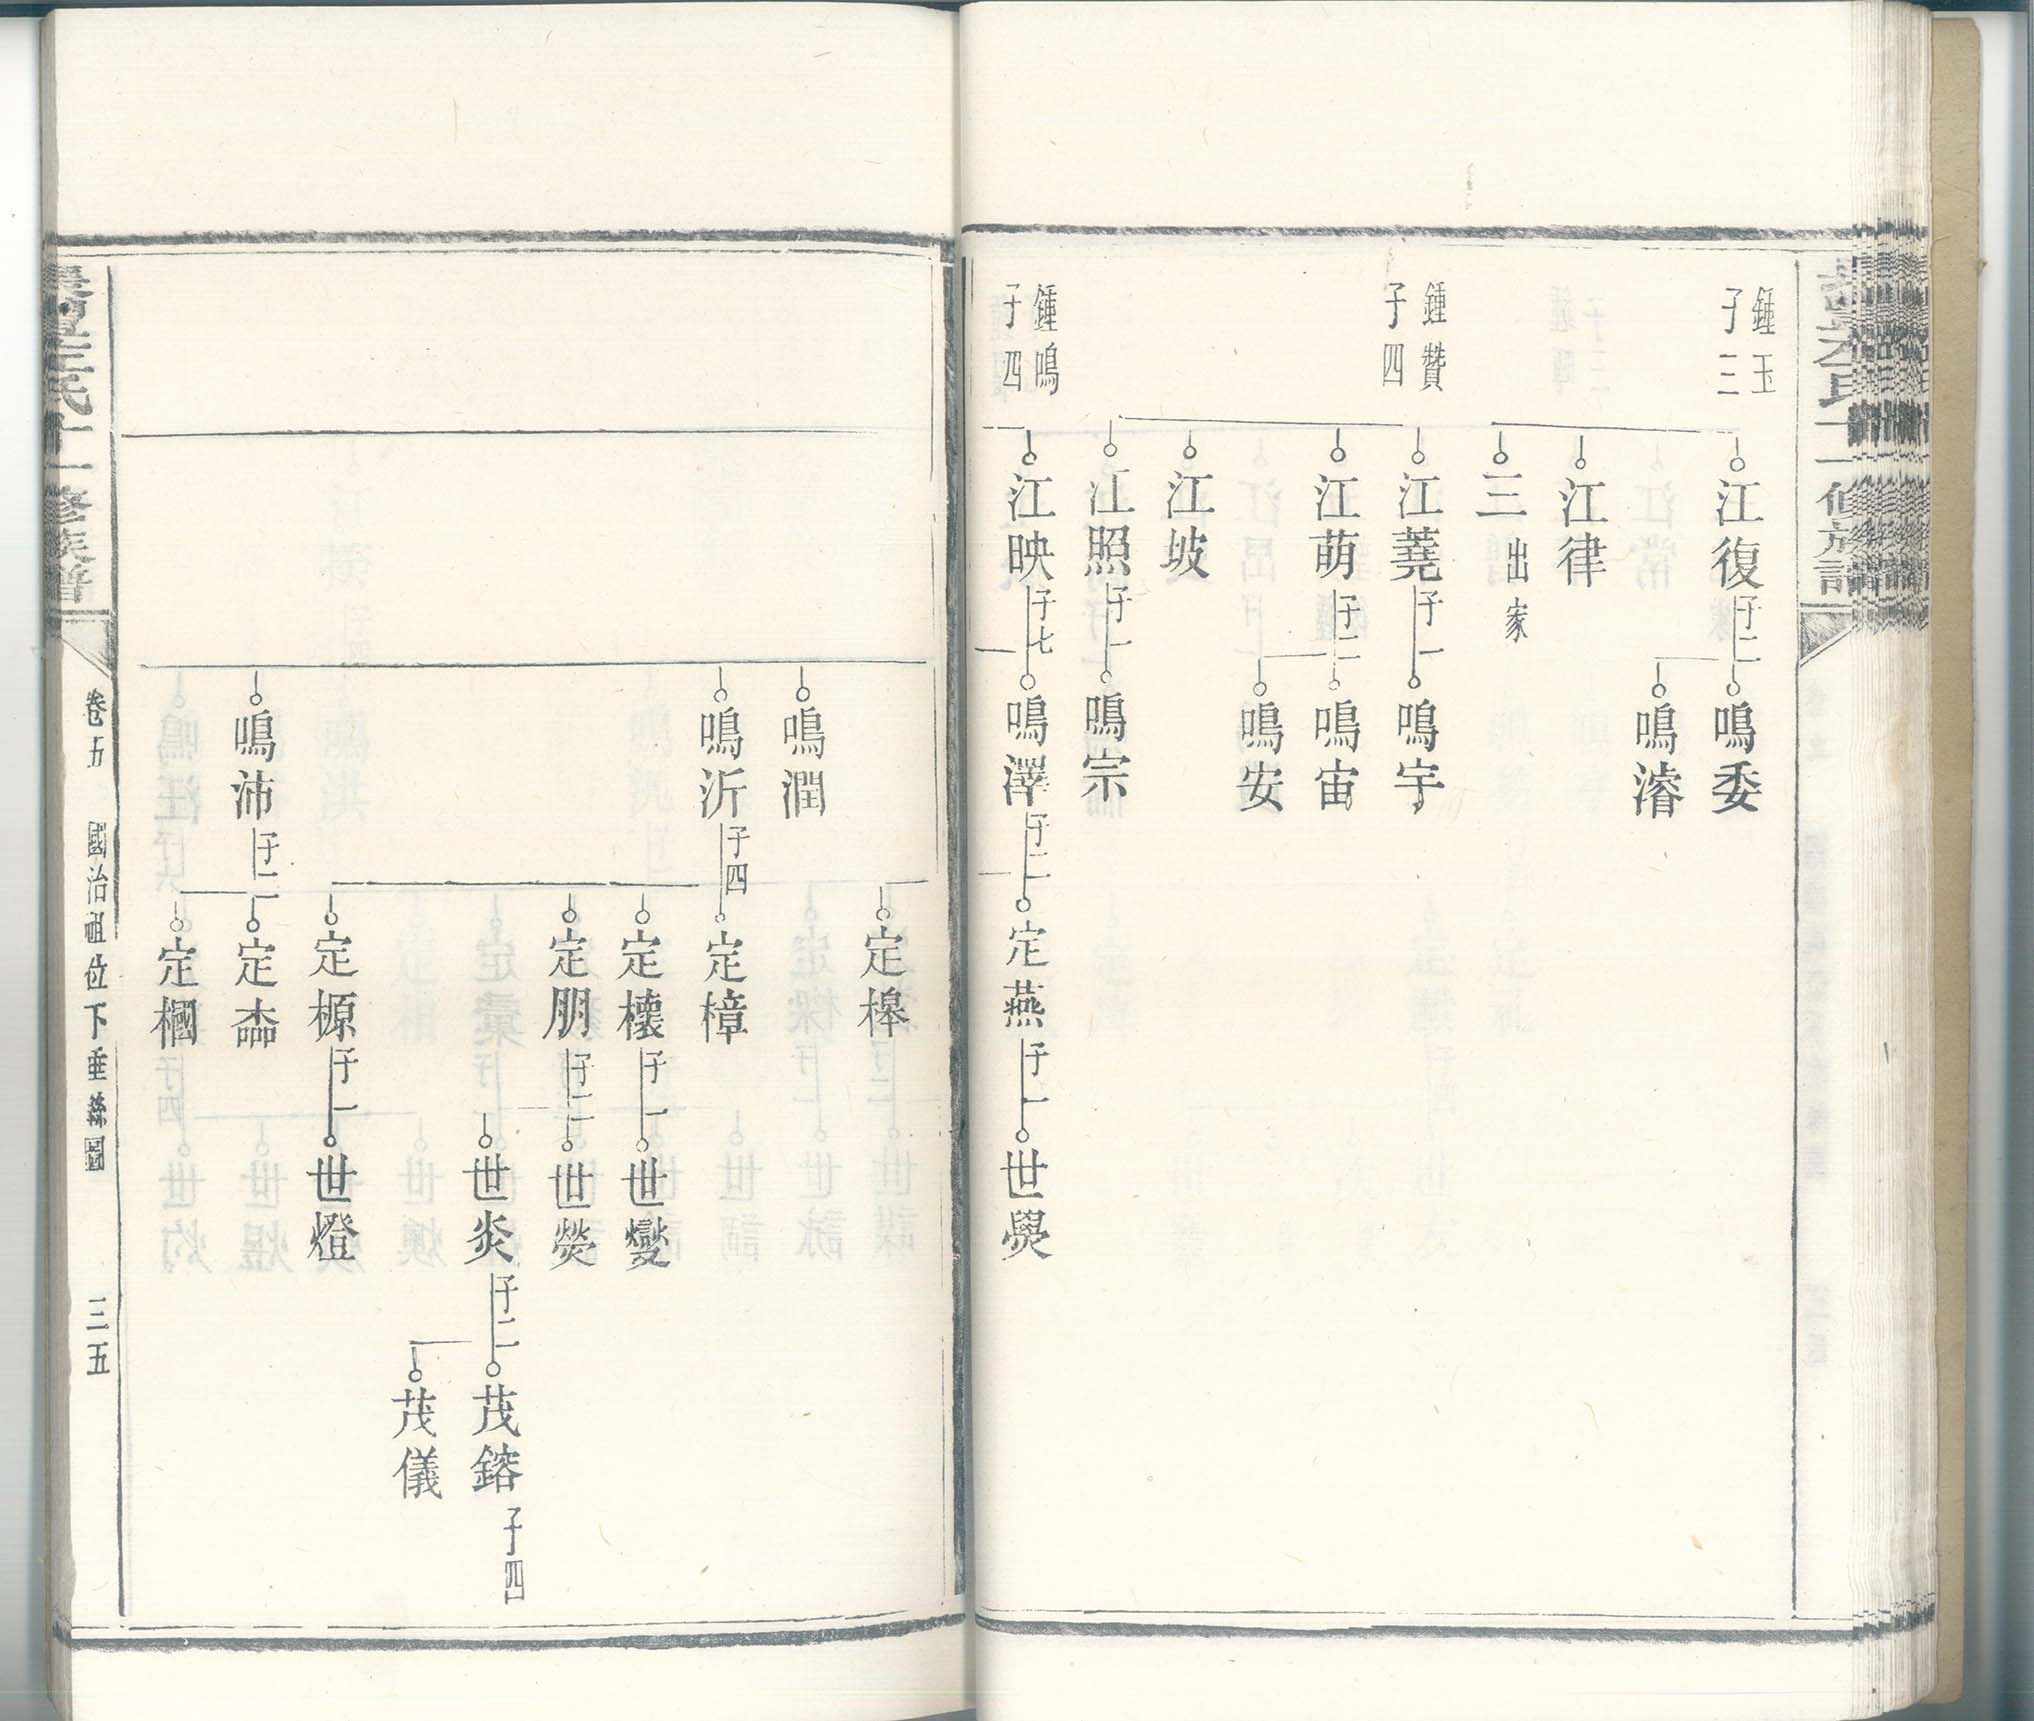 鍾玉
子三
江復
子二
鳴委
鳴濬
江律
三
出家
鍾贊
子四
江蕘
子一
鳴宇
江萌
子二
鳴宙
鳴安
江坡
江照
子一
鳴宗
鍾鳴
子四
江映
子七
鳴澤
子二
定燕
子一
世爂
定槔
鳴潤
鳴沂
子四
定樟
定欀
子一
世燮
定朋
子二
世熒
世炎
子二
茂鎔
子四
茂儀
定榞
子一
世燈
鳴沛
子二
定
定棞
氏十一修族譜
卷五
國治祖位下垂絲圖
三五